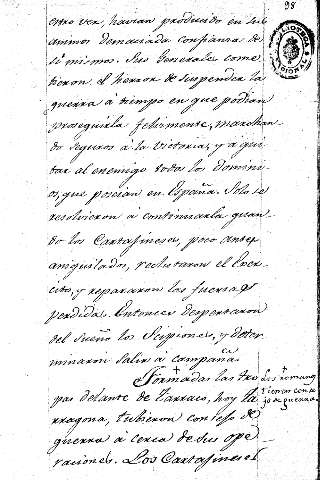 98
BIBLIOTECA NACIONAL
otro ver, havian producido en sus
animos demaciada confianza de
si mismos. Sus Generales come
tieron el herror de suspender la
guerra à tiempo en que podian
proseguirla felizmente, marchan
do seguros à la Victoria, y à qui
tar al enemigo todos los domini
os, que poseian en España. Solo se
resolvieron a continuarla quan
do los Cartagineses, poco antes
aniquilados, reclutaron el Exer
cito, y repararon las fuerzas
perdidas. Entonces despertaron
del sueño los Scipiones, y deter
minaron salir à campaña.
Formadas las tro
pas delante de Tarraco, hoy Ta
rragona, tubieron consejo de
guerra à cerca de sus ope
raciones. Los Cartagineses
Los romanos
tienen conse
jo de guerra.